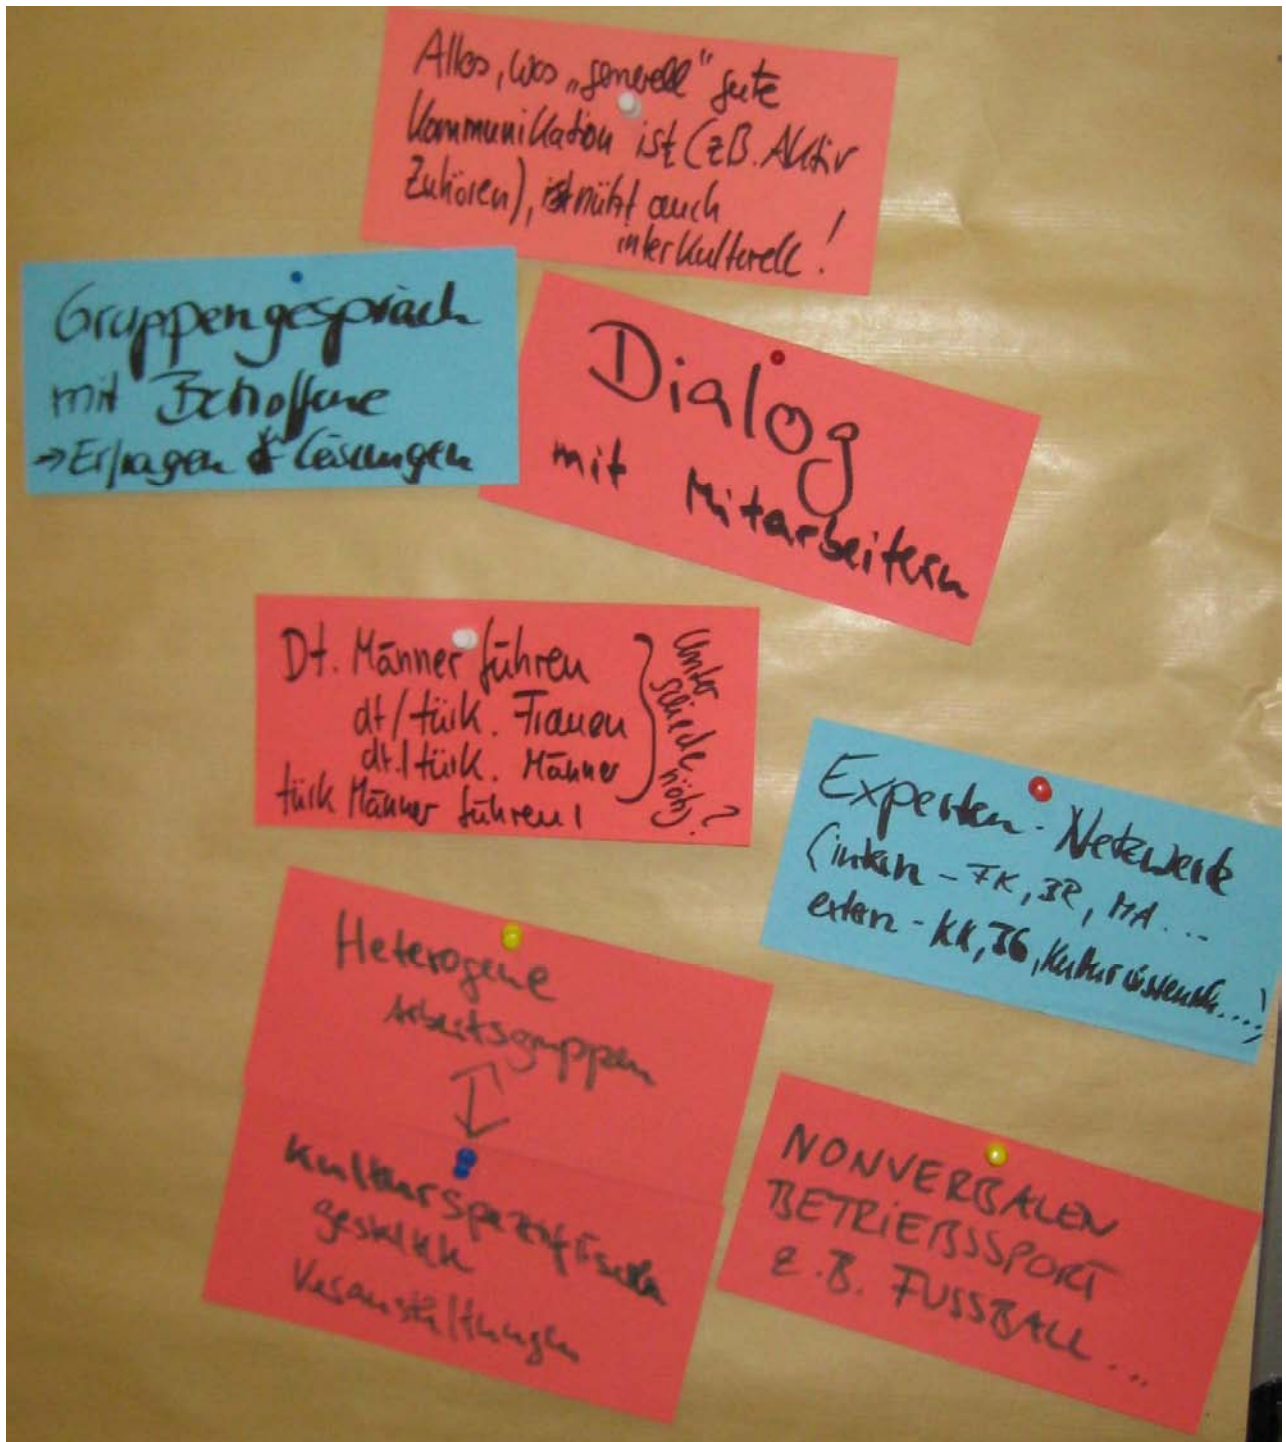 Alles, was „generell" gute
Kommunikation ist (z.B. Aktiv
Zuhören), nützt auch
interkulturell!
Gruppengespräch
mit Betroffene
→ Erfragen Lösungen
Dialog
mit Mitarbeitern
Dt. Männer führen
dt/türk. Frauen
dt./türk. Männer
türk Männer führen!
Unter
schiede
nötig?
Experten-Netzwerke
(intern - FK, BR, MA...
extern - KK, BG, Kulturwissensch....)
Heterogene
Arbeitsgruppen
Kulturspezifisch
Veranstaltungen
NONVERBALEN
BETRIEBSSPORT
z.B. FUSSBALL...